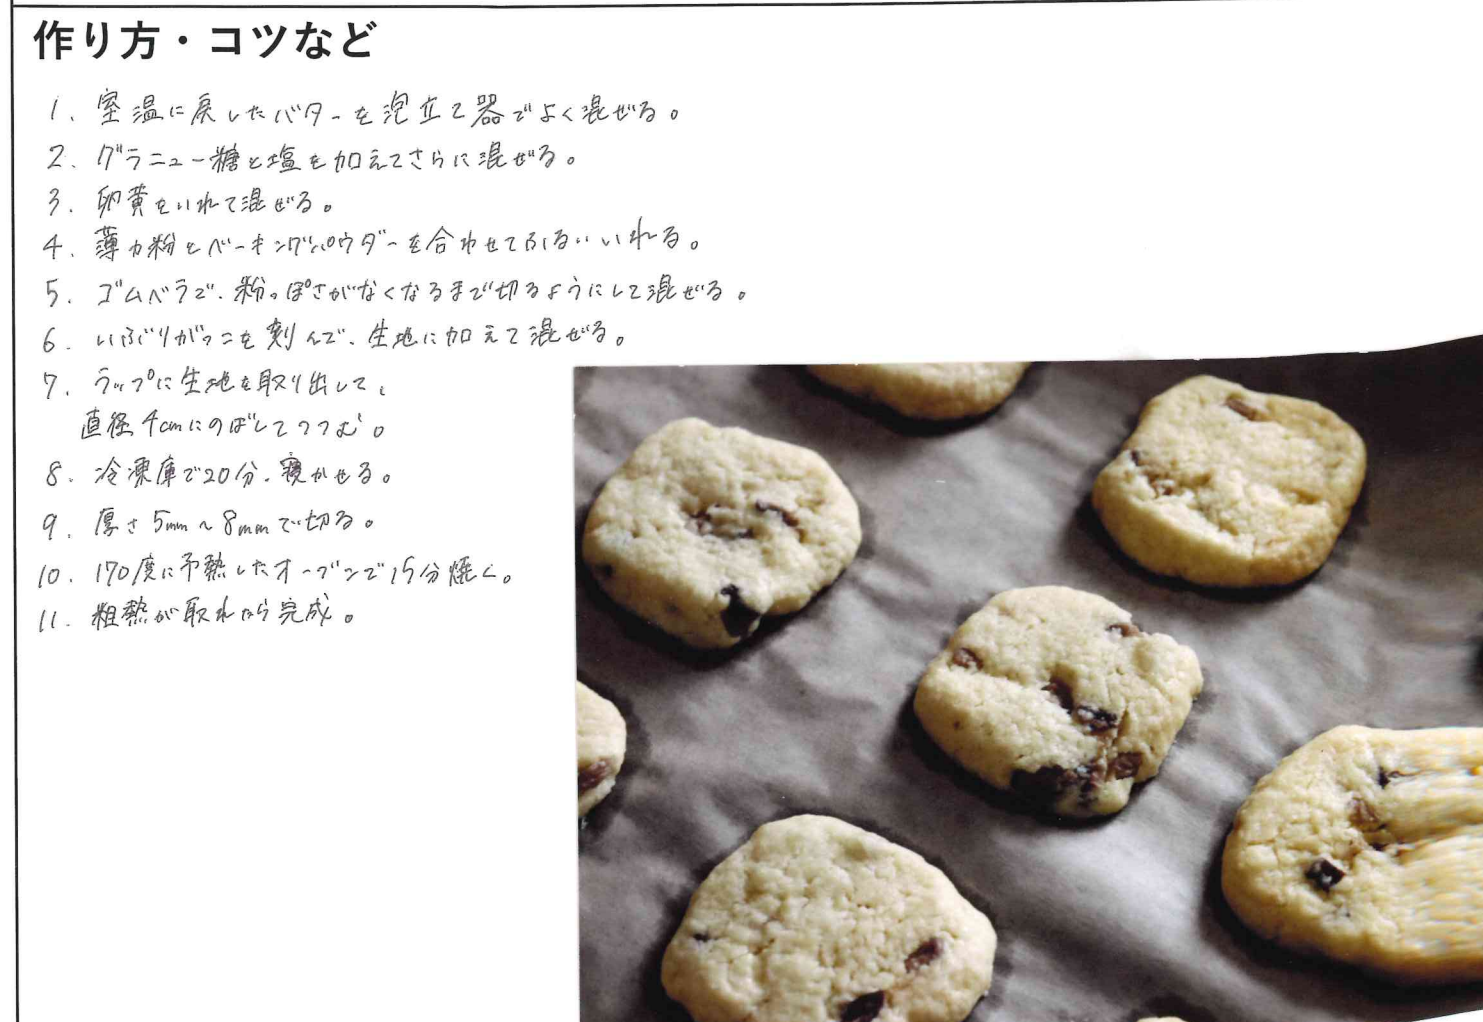 作り方・コツなど
1. 室温に戻したバターを泡立て器でよく混ぜる。
2. グラニュー糖と塩を加えてさらに混ぜる。
3. 卵黄をいれて混ぜる。
4. 薄力粉とベーキングパウダーを合わせてふるいいれる。
5. ゴムベラで、粉っぽさがなくなるまで切るようにして混ぜる。
6. いぶりがっこを刻んで、生地に加えて混ぜる。
7. ラップに生地を取り出して、
直径4cmにのばしてつつむ。
8. 冷凍庫で20分、寝かせる。
9. 厚さ5mm~8mmで切る。
10. 170度に予熱したオーブンで15分焼く。
11. 粗熱が取れたら完成。